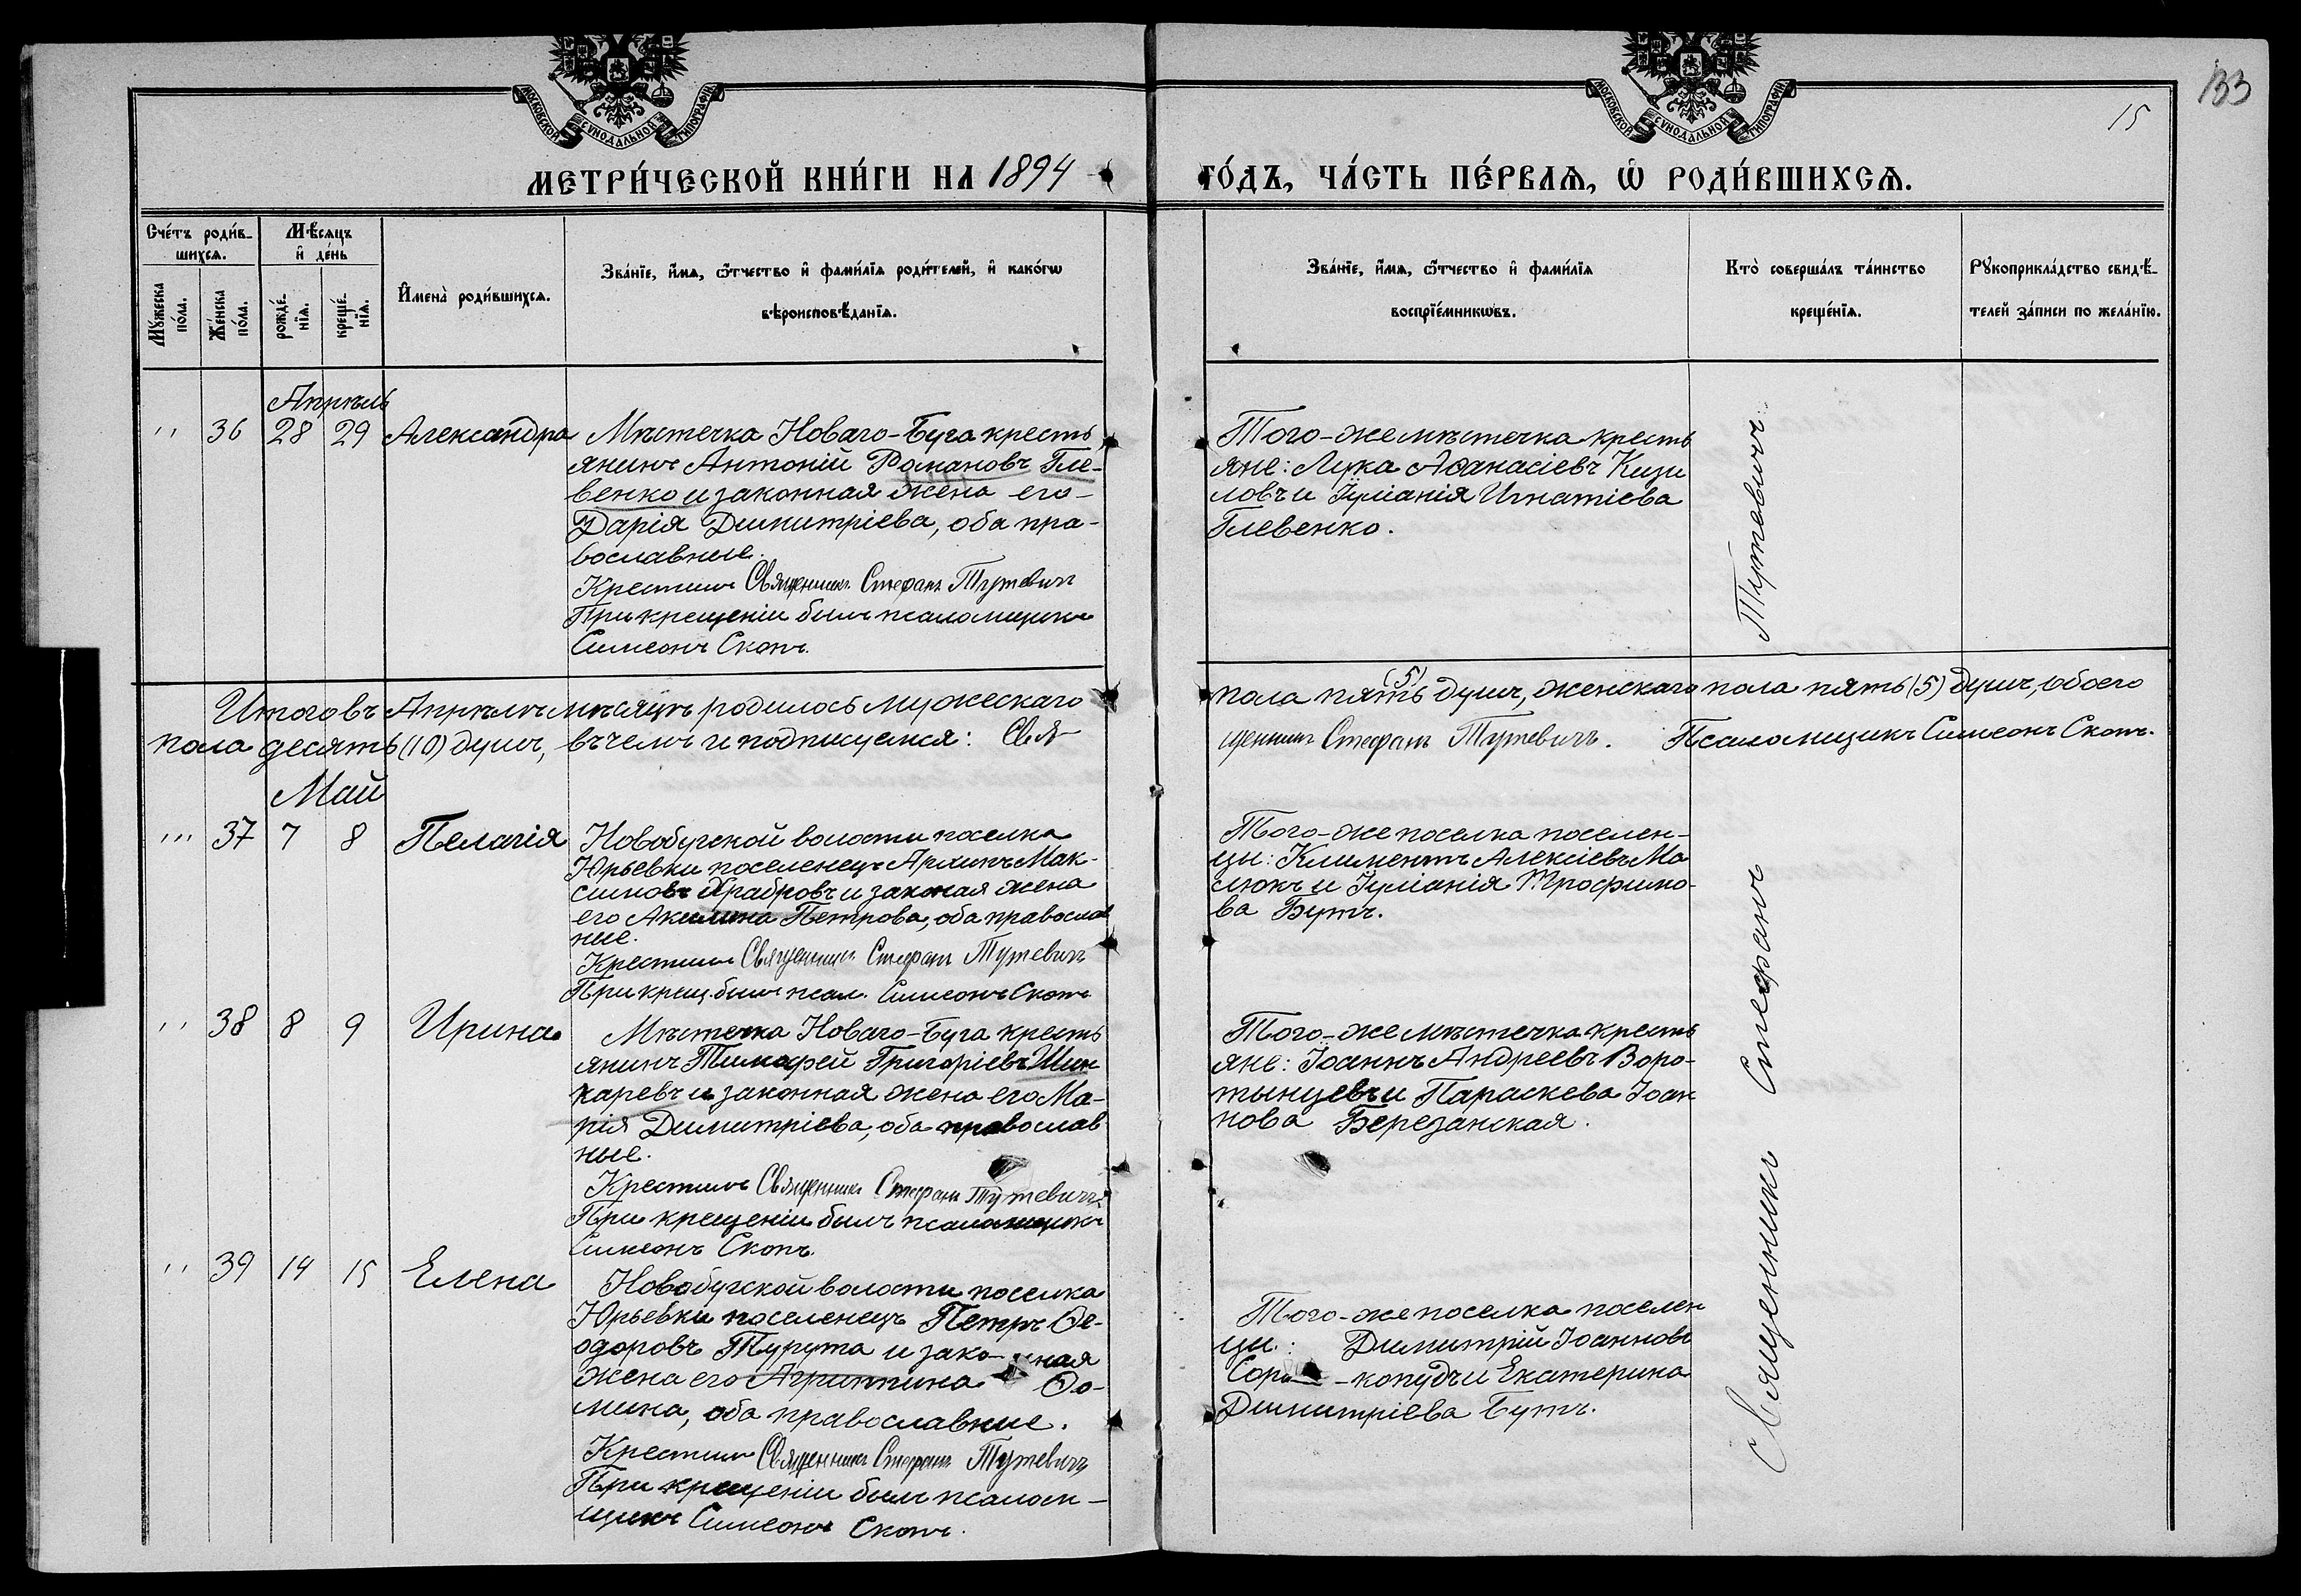 133
15
МОСКОВСКОЙ СѴНОДАЛЬНОЙ ТИПОГРАФІИ
МОСКОВСКОЙ СѴНОДАЛЬНОЙ ТИПОГРАФІИ
МЕТРИ́ЧЕСКОЙ КНИ́ГИ НА 1894
ГО́ДЪ, ЧА́СТЬ ПЕ́РВАѦ, Ѡ҆ РОДИ́ВШИХСѦ.
Сче́тъ роди́в-
шихсѧ.
Мѣ́сѧцъ
и҆ де́нь
Мꙋ́жеска
по́ла.
Же́нска
по́ла.
рожде́-
нїѧ.
креще́-
нїѧ.
И҆мена̀ роди́вшихсѧ.
Зва́нїе, и҆́мѧ, ѻ҆́тчество и҆ фами́лїѧ роди́телей, и҆ како́гѡ
вѣроисповѣ́данїѧ.
Зва́нїе, и҆́мѧ, ѻ҆́тчество и҆ фами́лїѧ
воспрїе́мникѡвъ.
Кто̀ соверша́лъ та́инство
креще́нїѧ.
Рꙋкоприкла́дство свидѣ́-
телей за́писи по жела́нїю.
Апрѣль
,, 36 28 29 Александра
Мѣстечка Новаго-Буга кресть
янинъ Антоній Романовъ Гле-
венко и законная жена его-
Дарія Димитріева, оба пра-
вославные.
Крестилъ Священникъ Стефанъ Тутевичъ
При крещеніи былъ псаломщикъ
Симеонъ Скопъ.
Того-же мѣстечка кресть
яне: Лука Аѳанасіевъ Кизи
ловъ и Іуліанія Игнатіева
Глевенко.
Итого въ Апрѣлѣ мѣсяцѣ родилось мужескаго
пола пять (5) душъ, женскаго пола пять (5) душъ, обоего
пола десять (10) душъ, въ чемъ и подписуемся: Свя-
щенникъ Стефанъ Тутевичъ. Псаломщикъ Симеонъ Скопъ.
Май
,,, 37 7 8 Пелагія
Новобугской волости поселка
Юрьевки поселенецъ Архипъ Мак-
симовъ Храбровъ и законая жена
его Акилина Петрова, оба православ
ные.
Крестилъ Священникъ Стефанъ Тутевичъ
При крещ. былъ псал. Симеонъ Скопъ
Того-же поселка поселен-
цы: Климентъ Алексіевъ Ма
слюкъ и Іуліанія Трофимо-
ва Бутъ.
,, 38 8 9 Ирина
Мѣстечка Новаго-Буга кресть
янинъ Тимофей Григоріевъ Шин
каревъ и законная жена его Ма-
рія Димитріева, оба православ
ные.
Крестилъ Священникъ Стефанъ Тутевичъ
При крещеніи былъ псаломщикъ
Симеонъ Скопъ.
Того-же мѣстечка кресть
яне: Іоаннъ Андреевъ Воро-
тынцевъ и Параскева Іоан
нова Березанская.
,, 39 14 15 Елена
Новобугской волости поселка
Юрьевки поселенецъ Петръ Ѳе-
одоровъ Турута и зако-нная
жена его Агриппина Ѳо-
мина, оба православные.
Крестилъ Священникъ Стефанъ Тутевичъ
При крещеніи былъ псалом-
щикъ Симеонъ Скопъ.
Того-же поселка поселен
цы: Димитрій Іоанновъ
Соро-копудъ и Екатерина
Димитріева Бутъ.
Священникъ Стефанъ Тутевичъ